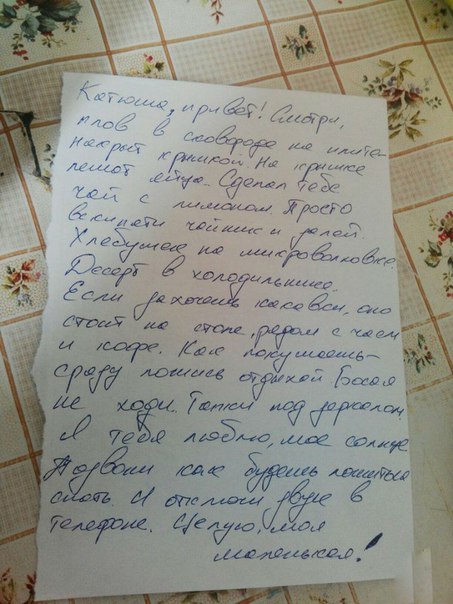 Катюша, привет! Смотри,
плов в сковороде на плите
накрыт крышкой. На крышке
лежат яйца. Сделал тебе
чай с лимоном. Просто
вскипяти чайник и залей
Хлебушек на микроволновке.
Десерт в холодильнике.
Если захочешь какавки, оно
стоит на столе, рядом с чаем
и кофе. Как покушаешь -
сразу ложись отдыхай. Босая
не ходи. Тапки под зеркалом.
Я тебя люблю, мое солнце
Позвони как будешь ложиться
спать И отключи звук в
телефоне. Целую, моя
маленькая!